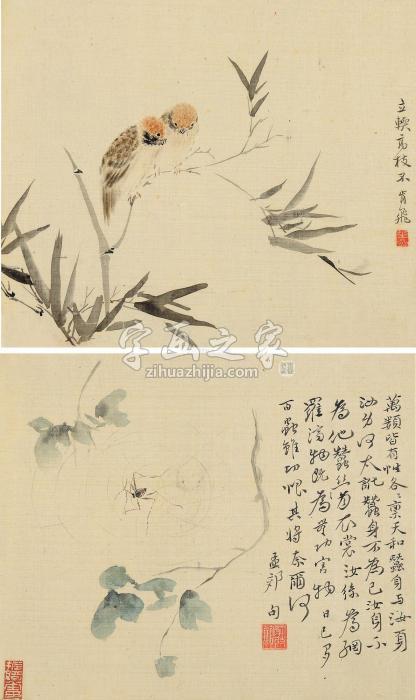 立輭高枝不肯飛
字画之家
zihuazhijia.com
萬類皆有性各々禀天和蠶身与汝身
汝身何太訛蠶身不為己汝身不
為他蠶絲為衣裳汝絲為網
羅濟物既為無功害物日已多
百蟲雖切恨其將奈爾何
孟郊句